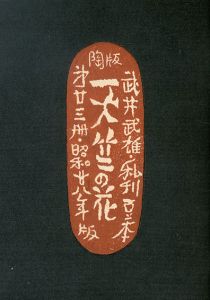 陶版
武井武雄・私刊豆本
天竺の花
第廿三冊・昭和廿八年版